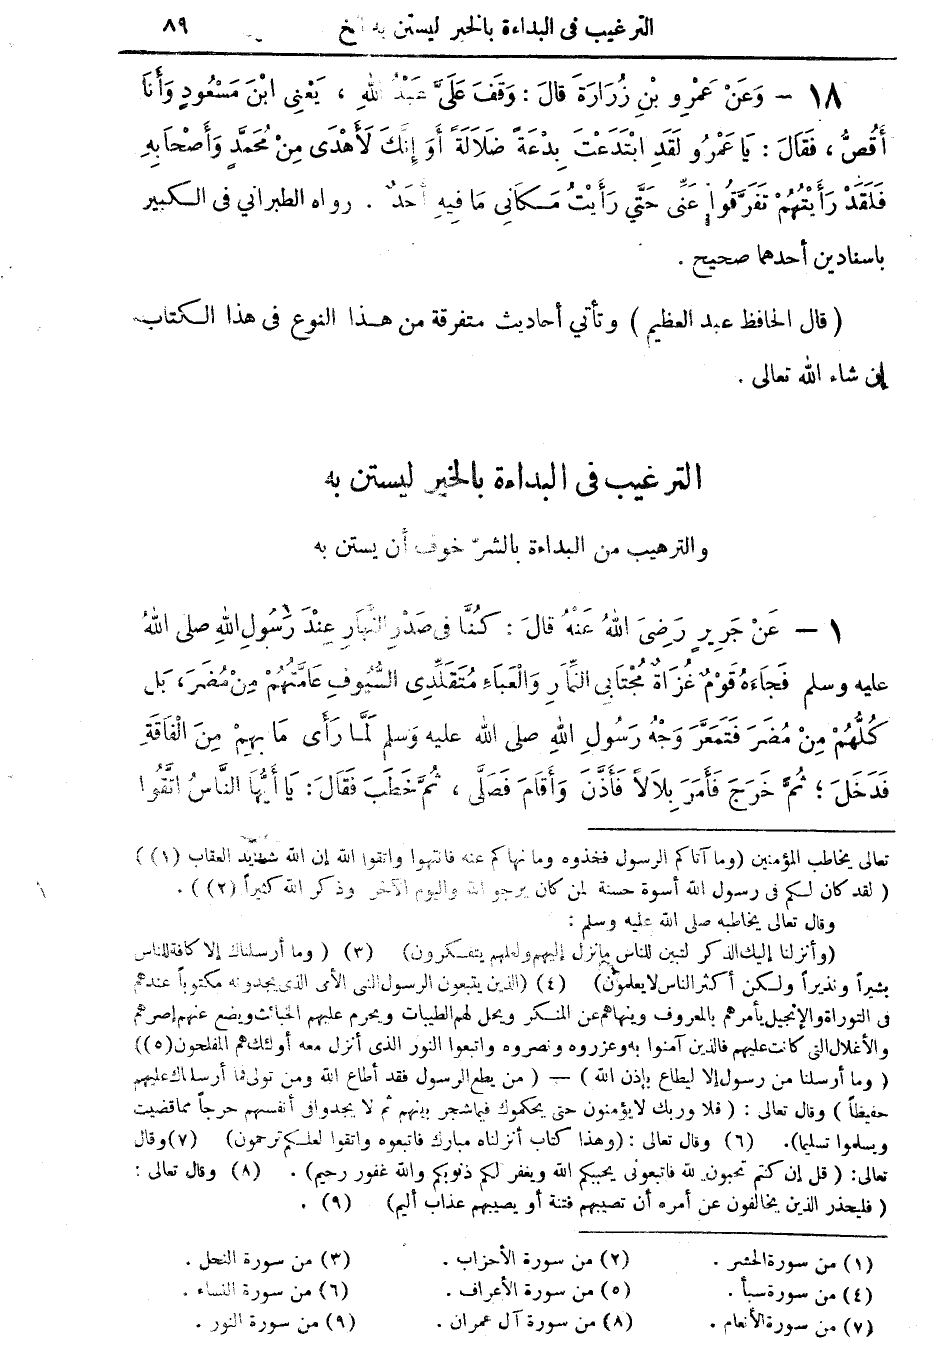 الترغيب فى البداءة بالخير ليستن به الخ ٨٩
١٨ – وَعَنْ عَمْرِو بْنِ زُرَارَةَ قَالَ : وَقَفَ عَلَىَّ عَبْدُ اللهِ ، يَعْنِى ابْنَ مَسْعُودٍ وَأَنَا
أَقُصُّ ، فَقَالَ : يَا عَمْرُو لَقَدِ ابْتَدَعْتَ بِدْعَةً ضَلَالَةً أَوَ إِنَّكَ لَأَهْدَى مِنْ مُحَمَّدٍ وَأَصْحَابِهِ
فَلَقَدْ رَأَيْتُهُمْ تَفَرَّقُوا عَنِّى حَتَّى رَأَيْتُ مَكَانِى مَا فِيهِ أَحَدٌ . رواه الطبرانى فى الكبير
باسنادين أحدهما صحيح .
( قال الحافظ عبد العظيم ) وتأتى أحاديث متفرقة من هذا النوع فى هذا الكتاب
إن شاء الله تعالى .
الترغيب فى البداءة بالخير ليستن به
والترهيب من البداءة بالشرّ خوف أن يستن به
١ – عَنْ جَرِيرٍ رَضِىَ اللهُ عَنْهُ قَالَ : كُنَّا فِى صَدْرِ النَّهَارِ عِنْدَ رَسُولِ اللهِ صلى اللهُ
عليه وسلم فَجَاءَهُ قَوْمٌ غُزَاةٌ مُجْتَابِى النِّمَارِ وَالْعَبَاءِ مُتَقَلِّدِى السُّيُوفِ عَامَّتُهُمْ مِنْ مُضَرَ ، بَل
كُلُّهُمْ مِنْ مُضَرَ فَتَمَعَّرَ وَجْهُ رَسُولِ اللهِ صلى الله عليه وَسلم لَمَّا رَأَى مَا بِهِمْ مِنَ الْفَاقَةِ
فَدَخَلَ ؛ ثُمَّ خَرَجَ فَأَمَرَ بِلَالاً فَأَذَّنَ وَأَقَامَ فَصَلَّى ، ثُمَّ خَطَبَ فَقَالَ : يَا أَيُّهَا النَّاسُ اتَّقُوا
تعالى يخاطب المؤمنين (وما آتاكم الرسول فخذوه وما نهاكم عنه فانتهوا واتقوا الله إن الله شديد العقاب (١) )
( لقد كان لكم فى رسول الله أسوة حسنة لمن كان يرجو الله واليوم الآخر وذكر الله كثيراً (٢) ) .
وقال تعالى يخاطبه صلى الله عليه وسلم :
(وأنزلنا إليك الذكر لتبين للناس ما نزل إليهم ولعلهم يتفكرون) (٣) ( وما أرسلناك إلا كافة للناس
بشيراً ونذيراً ولكن أكثر الناس لا يعلمون) (٤) (الذين يتبعون الرسول النبى الأمى الذى يجدونه مكتوباً عندهم
فى التوراة والإنجيل يأمرهم بالمعروف وينهاهم عن المنكر ويحل لهم الطيبات ويحرم عليهم الخبائث ويضع عنهم إصرهم
والأغلال التى كانت عليهم فالذين آمنوا به وعزروه ونصروه واتبعوا النور الذى أنزل معه أولئك هم المفلحون (٥) )
( وما أرسلنا من رسول إلا ليطاع بإذن الله ) — ( من يطع الرسول فقد أطاع الله ومن تولى فما أرسلناك عليهم
حفيظاً ) وقال تعالى : ( فلا وربك لا يؤمنون حتى يحكموك فيما شجر بينهم ثم لا يجدوا فى أنفسهم حرجاً مما قضيت
ويسلموا تسليما). (٦) وقال تعالى : (وهذا كتاب أنزلناه مبارك فاتبعوه واتقوا لعلكم ترحمون) (٧) وقال
تعالى: ( قل إن كنتم تحبون الله فاتبعونى يحببكم الله ويغفر لكم ذنوبكم والله غفور رحيم) . (٨) وقال تعالى :
( فليحذر الذين يخالفون عن أمره أن تصيبهم فتنة أو يصيبهم عذاب أليم) (٩) .
(١) من سورة الحشر . (٢) من سورة الأحزاب . (٣) من سورة النحل .
(٤) من سورة سبأ . (٥) من سورة الأعراف . (٦) من سورة النساء .
(٧) من سورة الأنعام . (٨) من سورة آل عمران . (٩) من سورة النور .